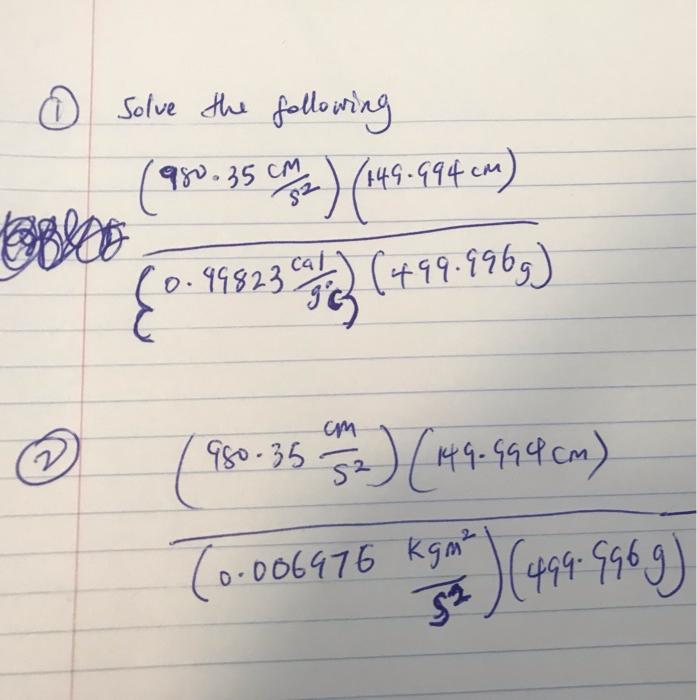 ① Solve the following
(980.35 cm/s²)(149.994 cm)
{0.99823 cal/g°C}(499.996g)
② (980.35 cm/s²)(149.994 cm)
(0.006976 Kgm²/s²)(499.996 g)